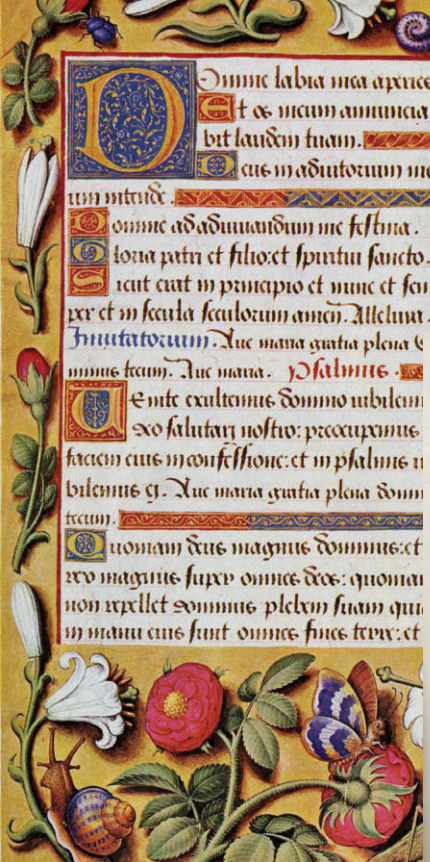 Domine labia mea aperies
Et os meum annuncia
bit laudem tuam.
Deus in adiutorium me
um intende.
Domine ad adiuuandum me festina.
Gloria patri et filio: et spiritui sancto.
Sicut erat in principio et nunc et sem
per et in secula seculorum amen. Alleluia.
Inuitatorium. Aue maria gratia plena
minus tecum. Aue maria. Psalmus.
Uenite exultemus domino iubilem
deo salutari nostro: preocupemus
faciem eius in confessione: et in psalmis
bilemus ei. Aue maria gratia plena dom
tecum.
Quoniam deus magnus dominus: et
rex magnus super omnes deos: quoniam
non repellet dominus plebem suam qui
in manu eius sunt omnes fines terre: et